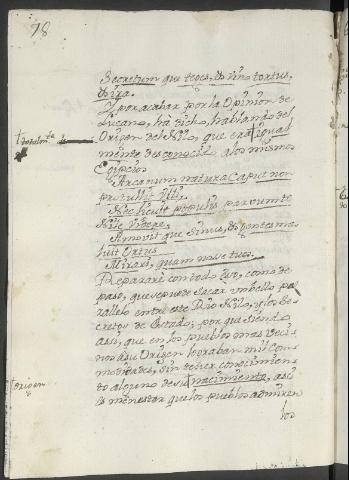 78
Secretum que teges, et vino tortus,
et ira.
Y por acabar por la Opinion de
Lucano, ha dicho, hablando del
Origen del Nilo, que era igual
mente desconocido a los mismos
Egipcios
Arcanum natura Caput non
protullit Ulli.
Nec licuit populis parvum te
Nile Videre,
Amovit que Sinus, et gentes ma
luit Ortus
Mirari, quam nosse tuos.
Repararé con todo eso, como de
paso, que se puede sacar un bello pa
rallelo entre este Rio Nilo, y los Se
cretos de Estado; por que siendo
assi, que en los pueblos mas veci
nos à su Origen lograban mil Com
modidades, sin tener conocimien
to alguno de su nacimiento, assi
es menester que los pueblos admiren
los
origen